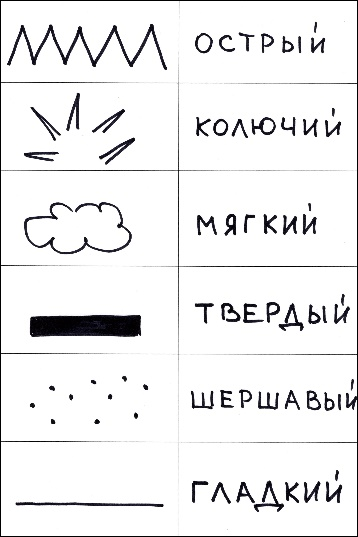 ОСТРЫЙ
КОЛЮЧИЙ
МЯГКИЙ
ТВЕРДЫЙ
ШЕРШАВЫЙ
ГЛАДКИЙ